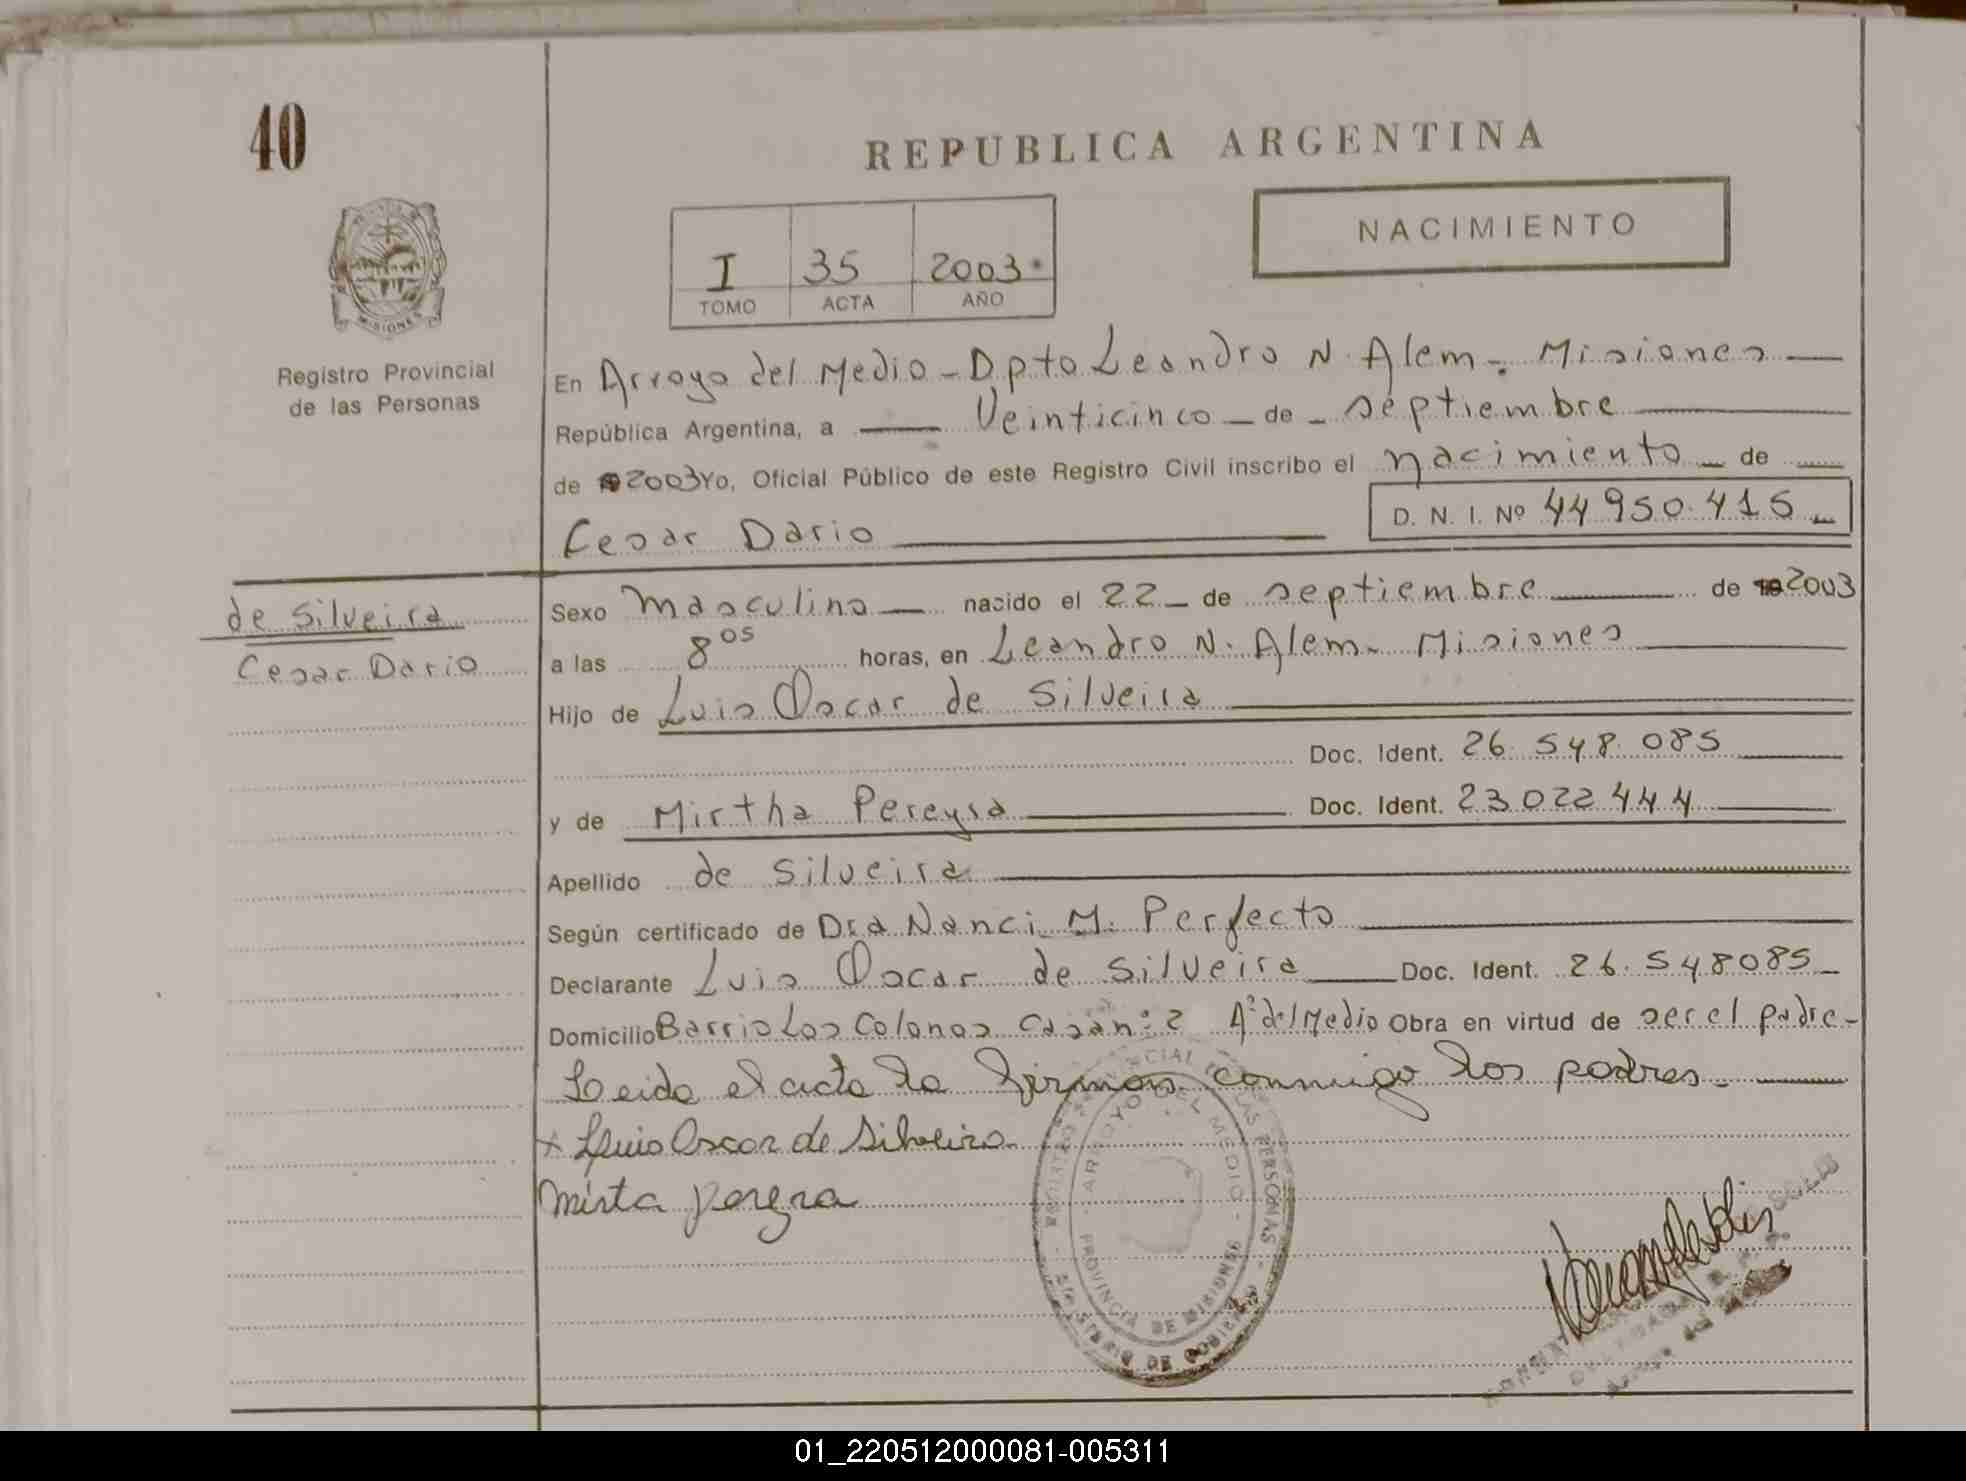 40
REPUBLICA ARGENTINA
NACIMIENTO
I 35 2003
TOMO ACTA AÑO
MISIONES
Registro Provincial
de las Personas
En Arroyo del Medio - Dpto Leandro N. Alem - Misiones
República Argentina, a Veinticinco - de - septiembre
de 2003 Yo, Oficial Público de este Registro Civil inscribo el nacimiento - de
Cesar Dario D. N. I. Nº 44950.415
de Silveira
Cesar Dario
Sexo Masculino nacido el 22 - de septiembre de 2003
a las 8 05 horas, en Leandro N. Alem - Misiones
Hijo de Luis Oscar de Silveira
Doc. Ident. 26.548.085
y de Mirtha Pereyra Doc. Ident. 23022444
Apellido de Silveira
Según certificado de Dra Nanci M. Perfecto
Declarante Luis Oscar de Silveira Doc. Ident. 26.548085
Domicilio Barrio Los Colonos Casa nº 2 Aº del Medio Obra en virtud de ser el padre -
Leida el acta la firman conmigo los padres -
x Luis Oscar de Silveira
Mirta pereyra
ARROYO DEL MEDIO
PROVINCIA DE MISIONES
01_220512000081-005311